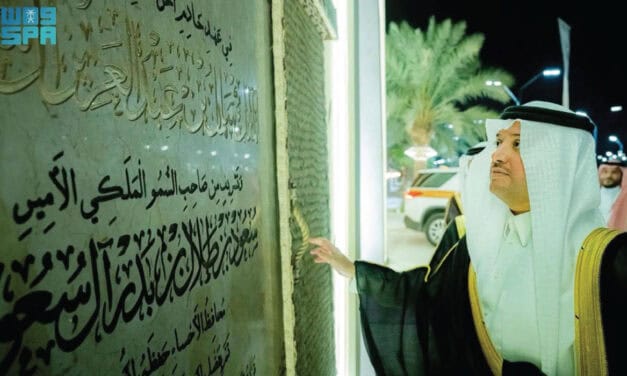 واس
SPA
في عهد خادم
سلمان بن عبدالعزيز آل
بتشريف من صاحب السمو الملكي الأمير
سعود بن طلال بن بدر آل سعود
محافظ الأحساء حفظه